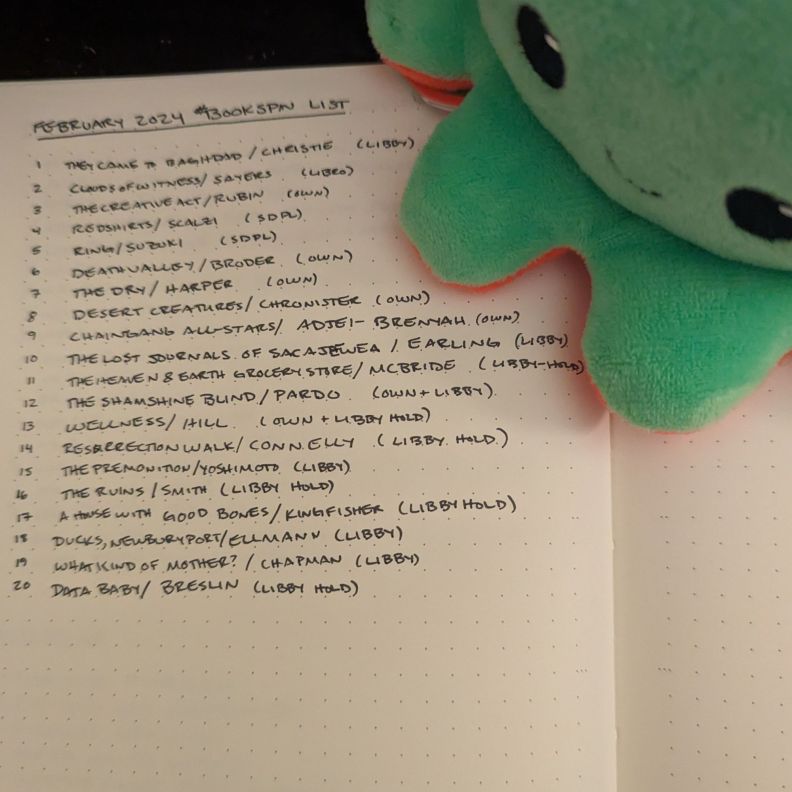 FEBRUARY 2024 #BOOKSPIN LIST
1 THEY CAME TO BAGHDAD / CHRISTIE (LIBBY)
2 CLOUDS OF WITNESS / SAYERS (LIBRO)
3 THE CREATIVE ACT / RUBIN (OWN)
4 REDSHIRTS / SCALZI (SDPL)
5 RING / SUZUKI (SDPL)
6 DEATH VALLEY / BRODER (OWN)
7 THE DRY / HARPER (OWN)
8 DESERT CREATURES / CHRONISTER (OWN)
9 CHAINGANG ALL-STARS / ADJEI-BRENYAH (OWN)
10 THE LOST JOURNALS OF SACAJEWEA / EARLING (LIBBY)
11 THE HEAVEN & EARTH GROCERY STORE / MCBRIDE (LIBBY-HOLD)
12 THE SHAMSHINE BLIND / PARDO (OWN + LIBBY)
13 WELLNESS / HILL (OWN + LIBBY HOLD)
14 RESURRECTION WALK / CONNELLY (LIBBY HOLD)
15 THE PREMONITION / YOSHIMOTO (LIBBY)
16 THE RUINS / SMITH (LIBBY HOLD)
17 A HOUSE WITH GOOD BONES / KINGFISHER (LIBBY HOLD)
18 DUCKS, NEWBURYPORT / ELLMANN (LIBBY)
19 WHAT KIND OF MOTHER? / CHAPMAN (LIBBY)
20 DATA BABY / BRESLIN (LIBBY HOLD)